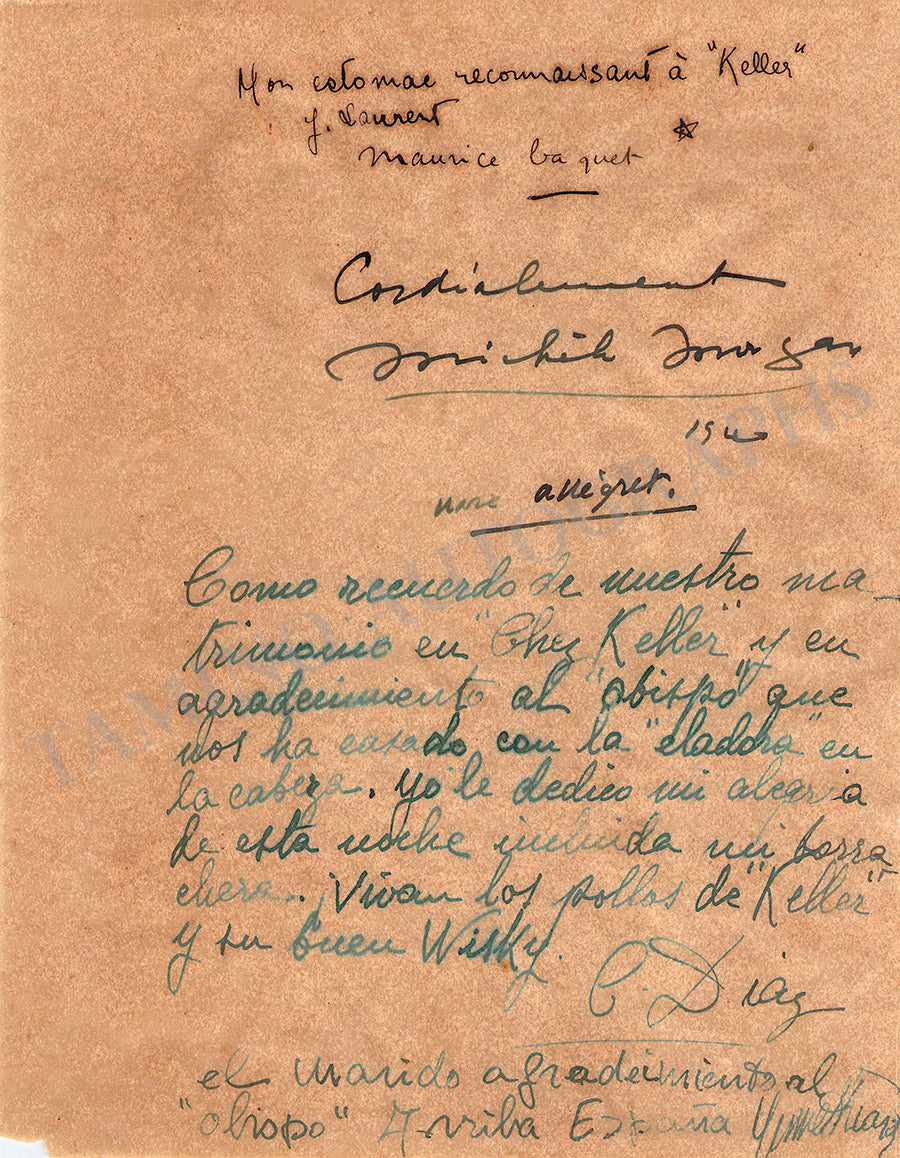 Mon estomac reconnaissant à "Keller"
y. Laurent
Maurice baquet
Cordialement
Michèle Morgan
1940
Marc allégret.
Como recuerdo de nuestro ma_
trimonio en "Chez Keller" y en
agradecimiento al "obispo" que
nos ha casado con la "eladora" en
la cabeza. yo le dedico mi alegria
de esta noche incluida mi borra
chera.. ¡Vivan los pollos de "Keller"
y su buen Wisky.
C. Diaz
el marido agradeimiento al
"obispo" Arriba España
TAMINO AUTOGRAPHS